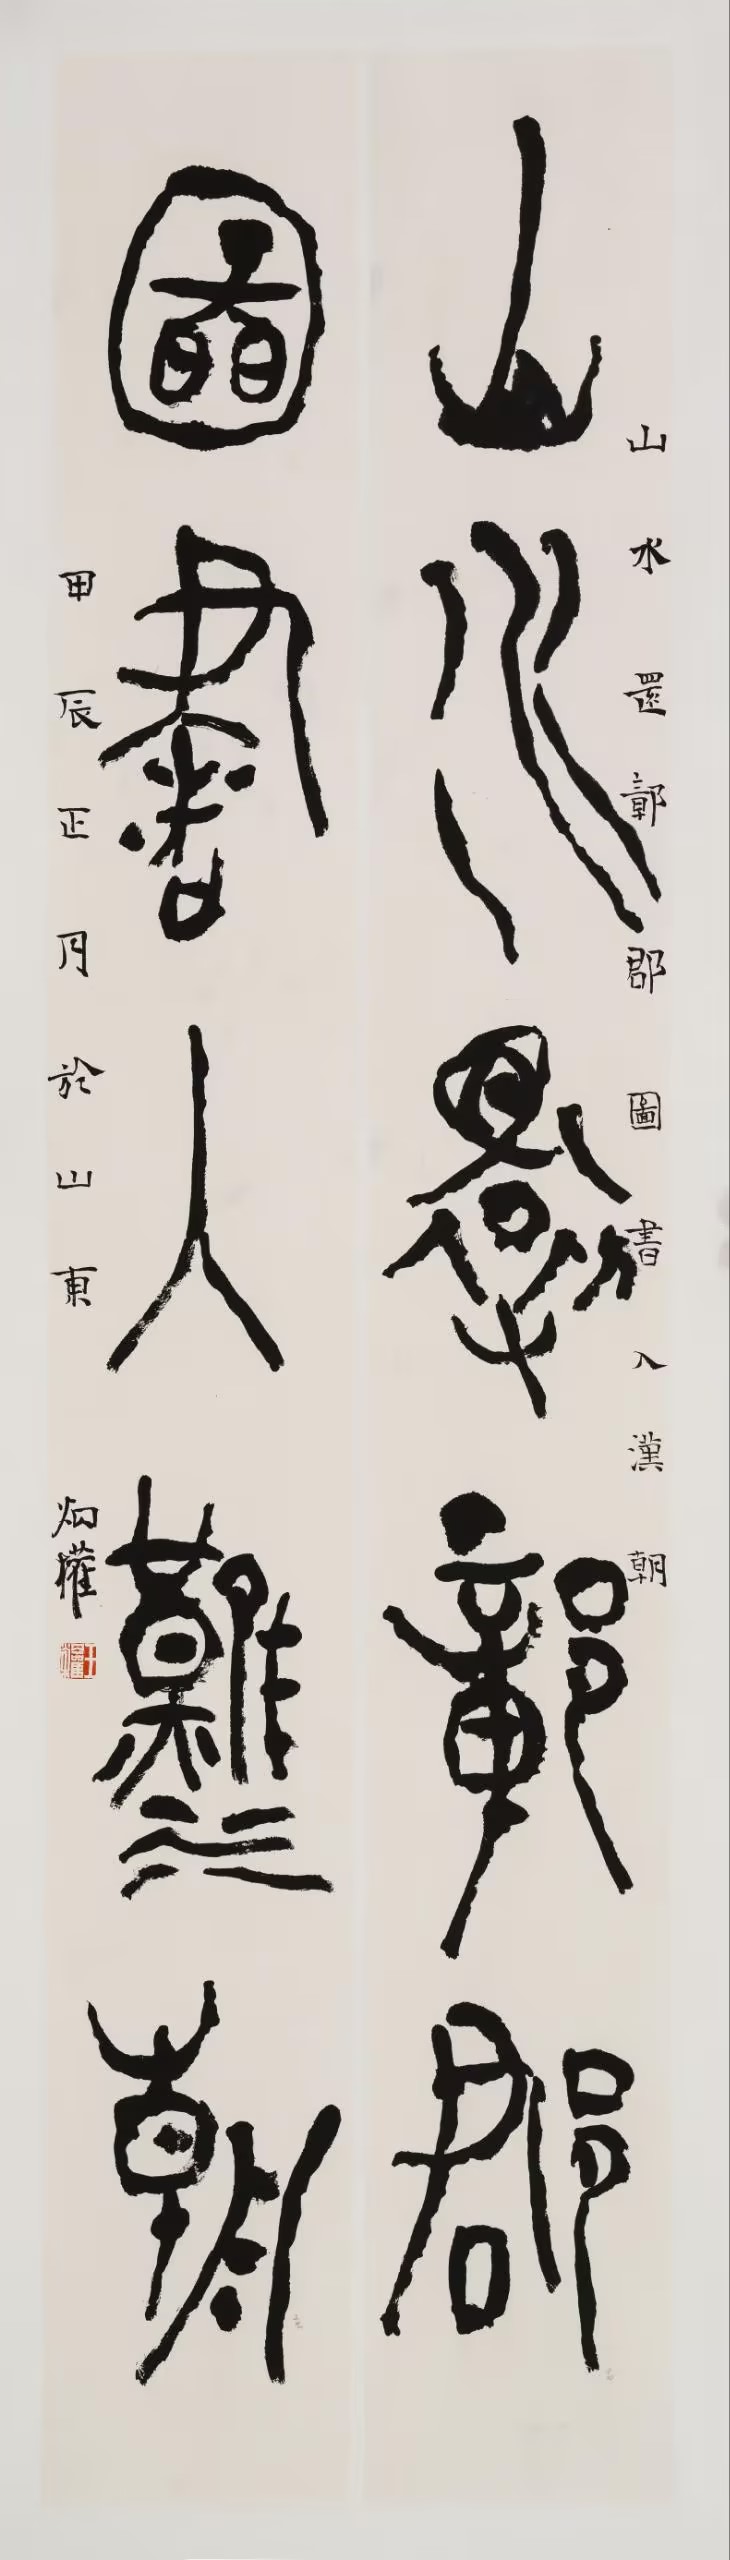 山水還鄣郡圖書入漢朝
山水還鄣郡
圖書入漢朝
甲辰正月於山東
炳權